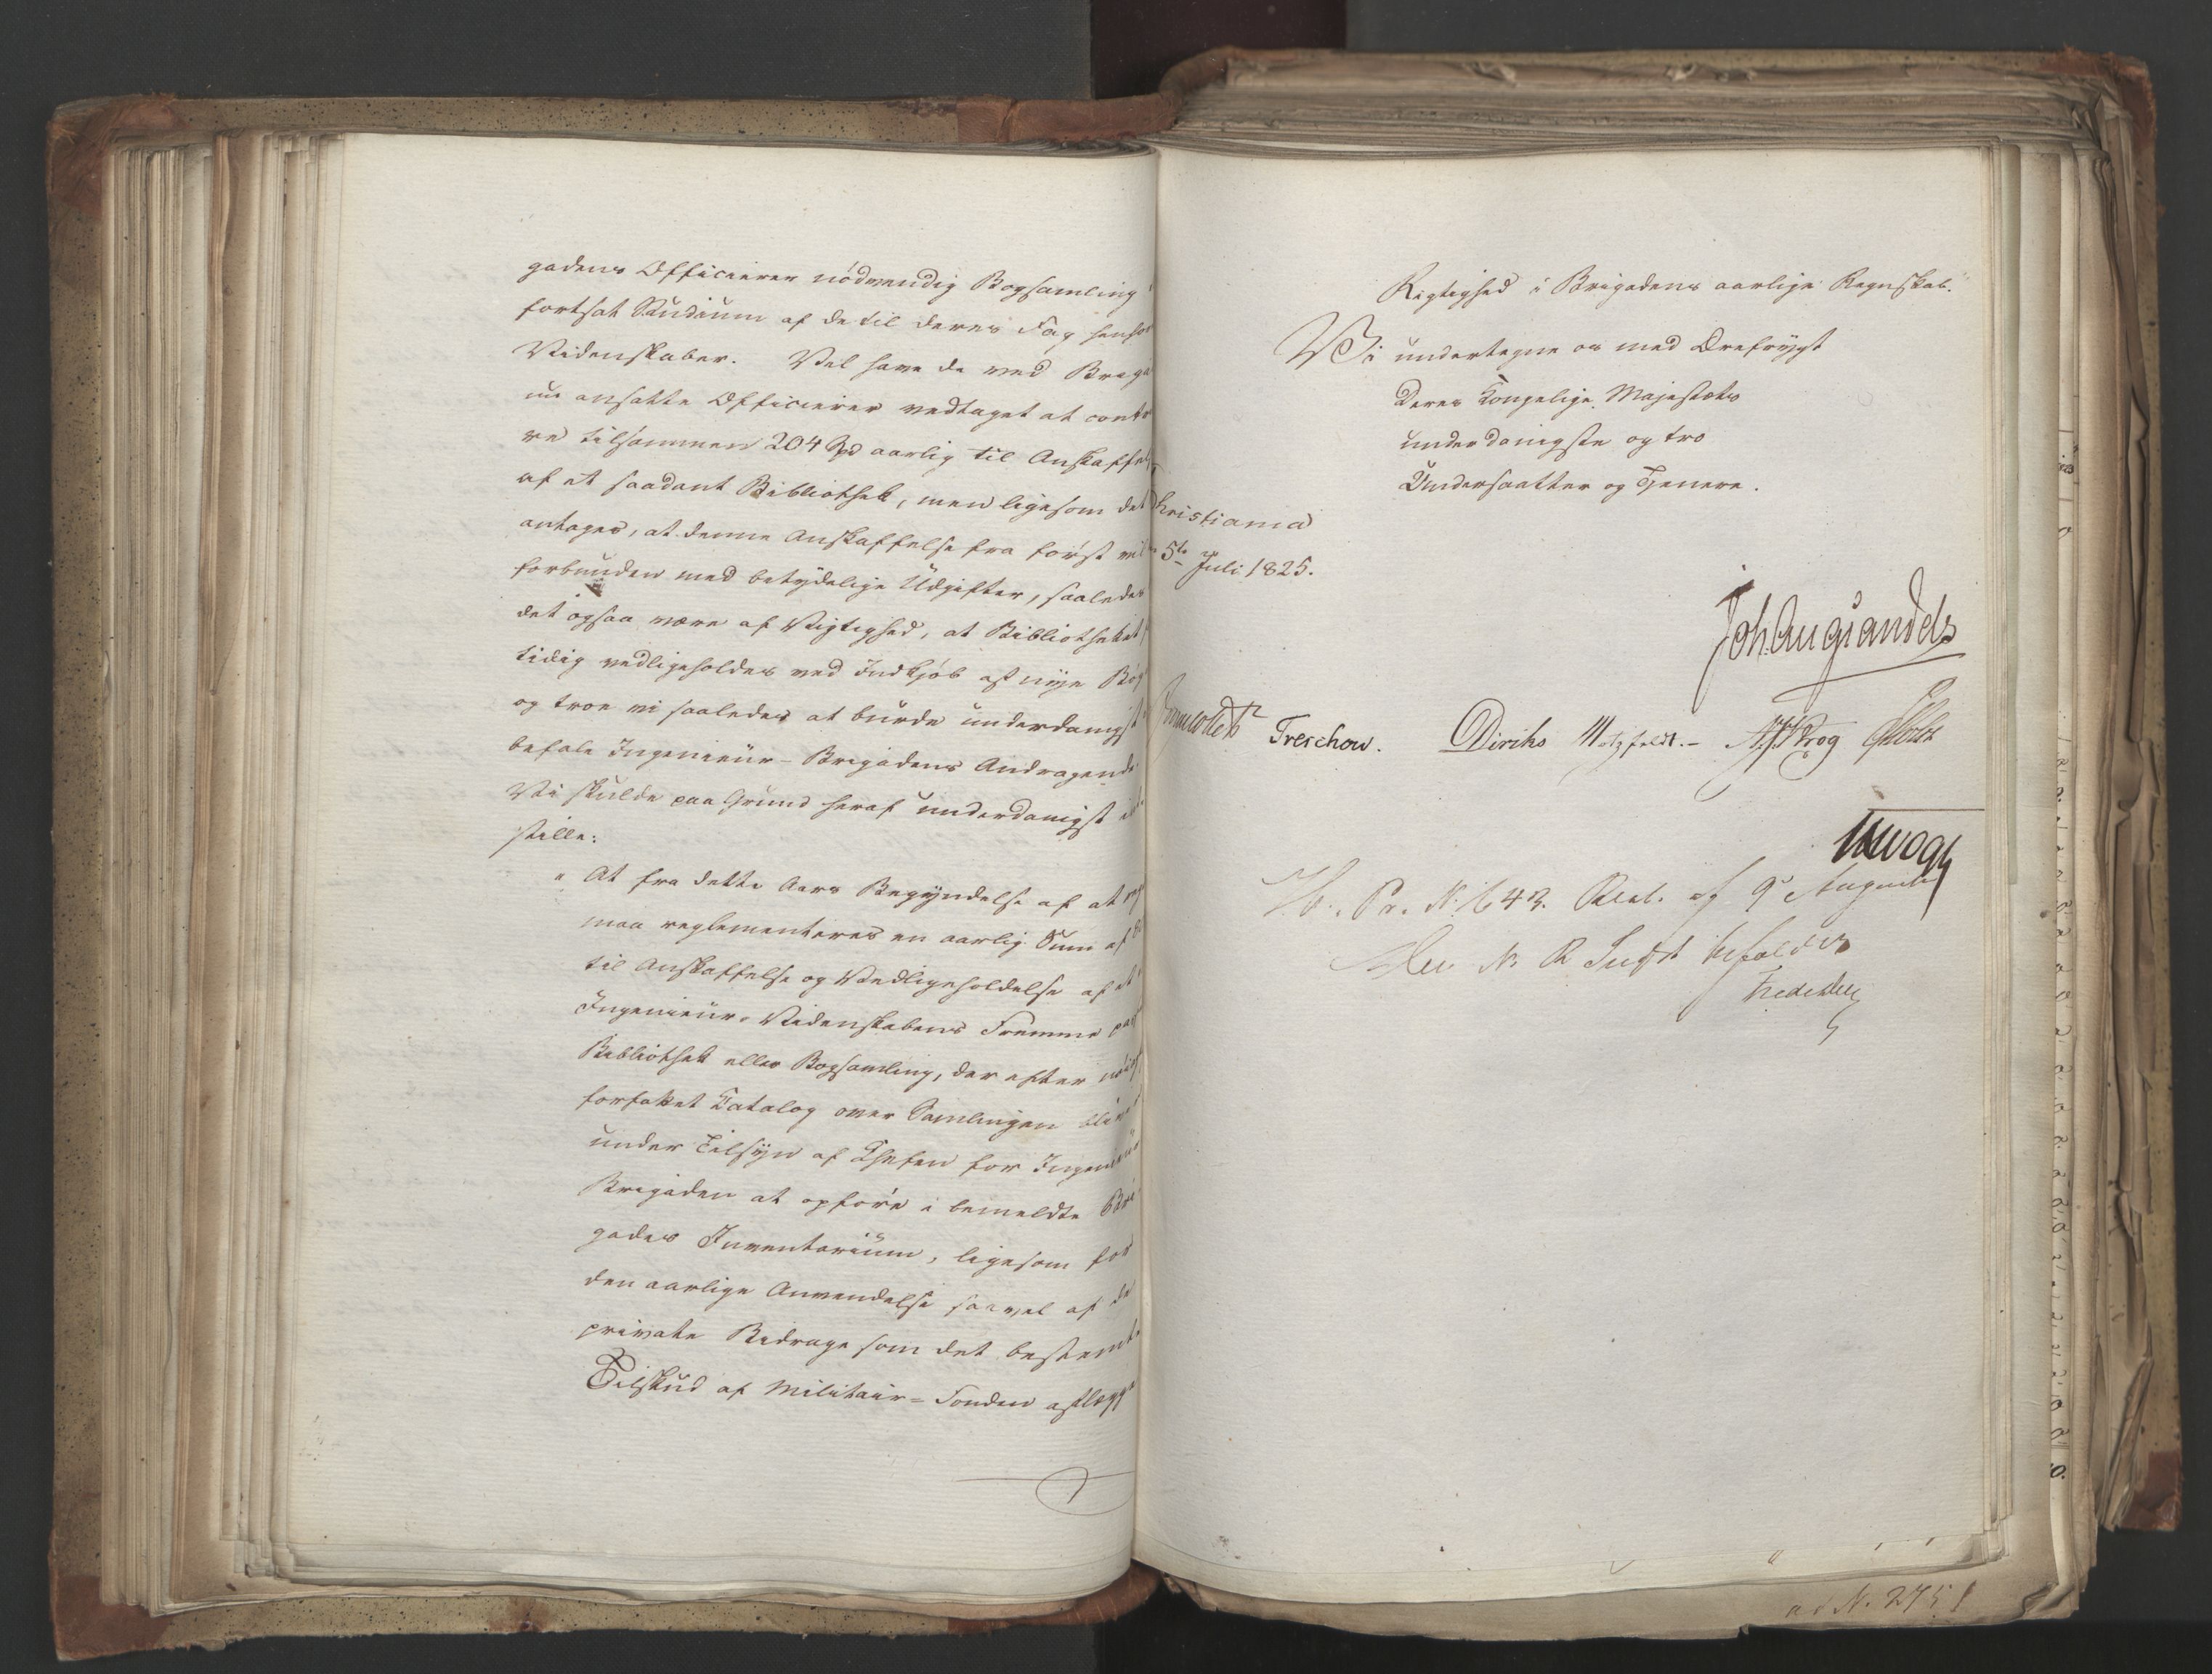 gadens Officierer nödvendig Bogsamling
fortsat Studium af de til deres Fag
Videnskaber. Vel have de ved Briga
nu ansatte Officierer vedtaget at cont
re tilsammen 204 Spd aarlig til Anskaffel
af et saadant Bibliothek, men ligesom det
antages, at denne Anskaffelse fra först vil
forbunden med betydelige Udgifter, saaledes
det ogsaa være af Vigtighed, at Bibliotheket
tidig vedligeholdes ved Indkjöb af nye Bög
og troe vi saaledes at burde underdanigst
befale Ingenieur-Brigadens Andragende
Vi skulde paa Grund heraf underdanigst
stille:
" At fra dette Aars Begyndelse af at reg
maa reglementeres en aarlig Sum af
til Anskaffelse og Vedligeholdelse af et
Ingenieur-Videnskabens Fremme
Bibliothek eller Bogsamling, der efter
forfattet Katalog over Samlingen bliver
under Tilsyn af Chefen for Ingenieur
Brigaden at opföre i bemeldte Bri
gades Inventarium, ligesom for
den aarlige Anvendelse saavel af de
private Bidrage som det bestemte
Tilskud af Militair-Fonden aflægges
Rigtighed i Brigadens aarlige Regnskab."
Vi undertegne os med Ærefrygt
Deres Kongelige Majestæts
underdanigste og tro
Undersaatter og Tjenere.
Christiania
5te Juli 1825.
Joh. Aug. Sandels
Sommerfeldt Treschow. Diriks Motzfeldt.- Krog Holst
Vogt
Pr. N: 643. Resol. af 9de August
N. R. Indst. bifaldes
ad N. 275